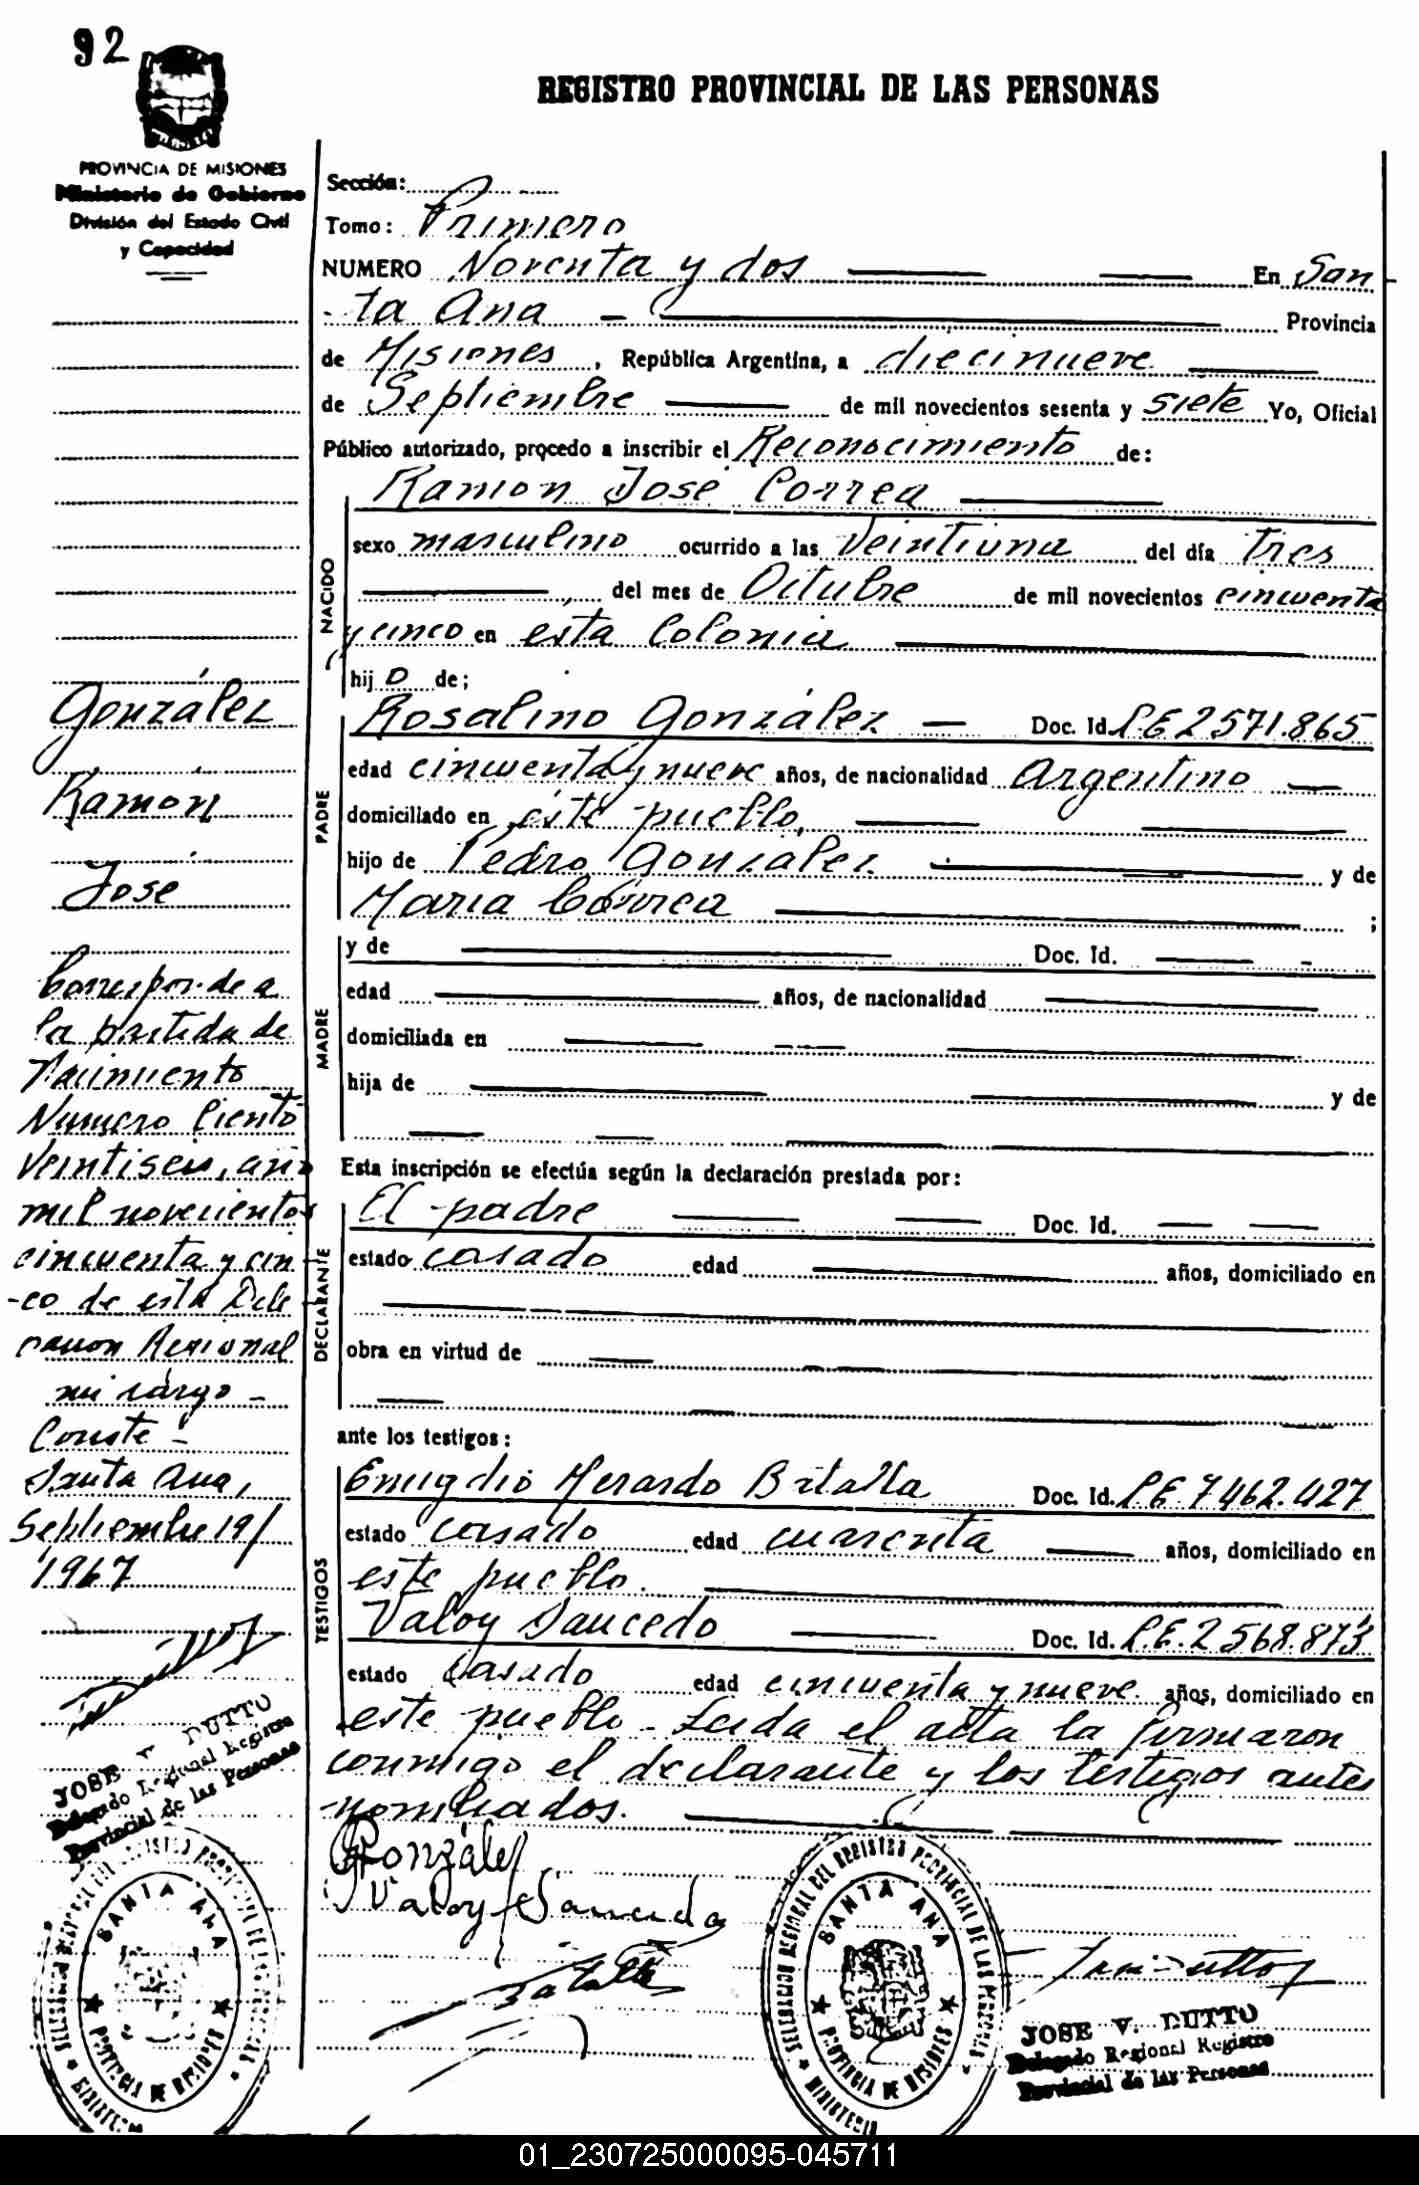 92
REGISTRO PROVINCIAL DE LAS PERSONAS
PROVINCIA DE MISIONES
Ministerio de Gobierno
División del Estado Civil
y Capacidad
Sección:
Tomo: Primero
NUMERO Noventa y dos En San-
ta Ana - Provincia
de Misiones, República Argentina, a diecinueve
de Septiembre de mil novecientos sesenta y siete Yo, Oficial
Público autorizado, procedo a inscribir el Reconocimiento de:
Ramon José Correa
NACIDO
sexo masculino ocurrido a las Veintiuna del día Tres
del mes de Octubre de mil novecientos cincuenta
y cinco en esta Colonia
hij o de;
PADRE
Rosalino González - Doc. Id. L.E 2571.865
edad cincuenta y nueve años, de nacionalidad Argentino
domiciliado en éste pueblo,
hijo de Pedro González y de
María Correa ;
MADRE
y de Doc. Id.
edad años, de nacionalidad
domiciliada en
hija de y de
Esta inscripción se efectúa según la declaración prestada por:
DECLARANTE
El padre Doc. Id.
estado casado edad años, domiciliado en
obra en virtud de
ante los testigos:
TESTIGOS
Emigdio Merardo Batalla Doc. Id. L.E. 7462.427
estado casado edad cuarenta años, domiciliado en
este pueblo.
Valoy Saucedo Doc. Id. L.E. 2568.873
estado Casado edad cincuenta y nueve años, domiciliado en
este pueblo - Leida el acta la firmaron
conmigo el declarante y los testigos antes
nombrados.
González
Ramón
José
Corresponde a
la partida de
Nacimiento
Numero Ciento
Veintiseis, año
mil novecientos
cincuenta y cin-
-co de esta Dele
gacion Regional
mi cargo -
Conste -
Santa Ana,
Septiembre 19/
1967
JOSE V. DUTTO
Delegado Regional Registro
Provincial de las Personas
DELEGACION REGIONAL DEL REGISTRO PROVINCIAL DE LAS PERSONAS
SANTA ANA
PROVINCIA DE MISIONES
MINISTERIO
RGonzález
Valoy Saucedo
Batalla
DELEGACION REGIONAL DEL REGISTRO PROVINCIAL DE LAS PERSONAS
SANTA ANA
PROVINCIA DE MISIONES
MINISTERIO
JOSE V. DUTTO
Delegado Regional Registro
Provincial de las Personas
01_230725000095-045711